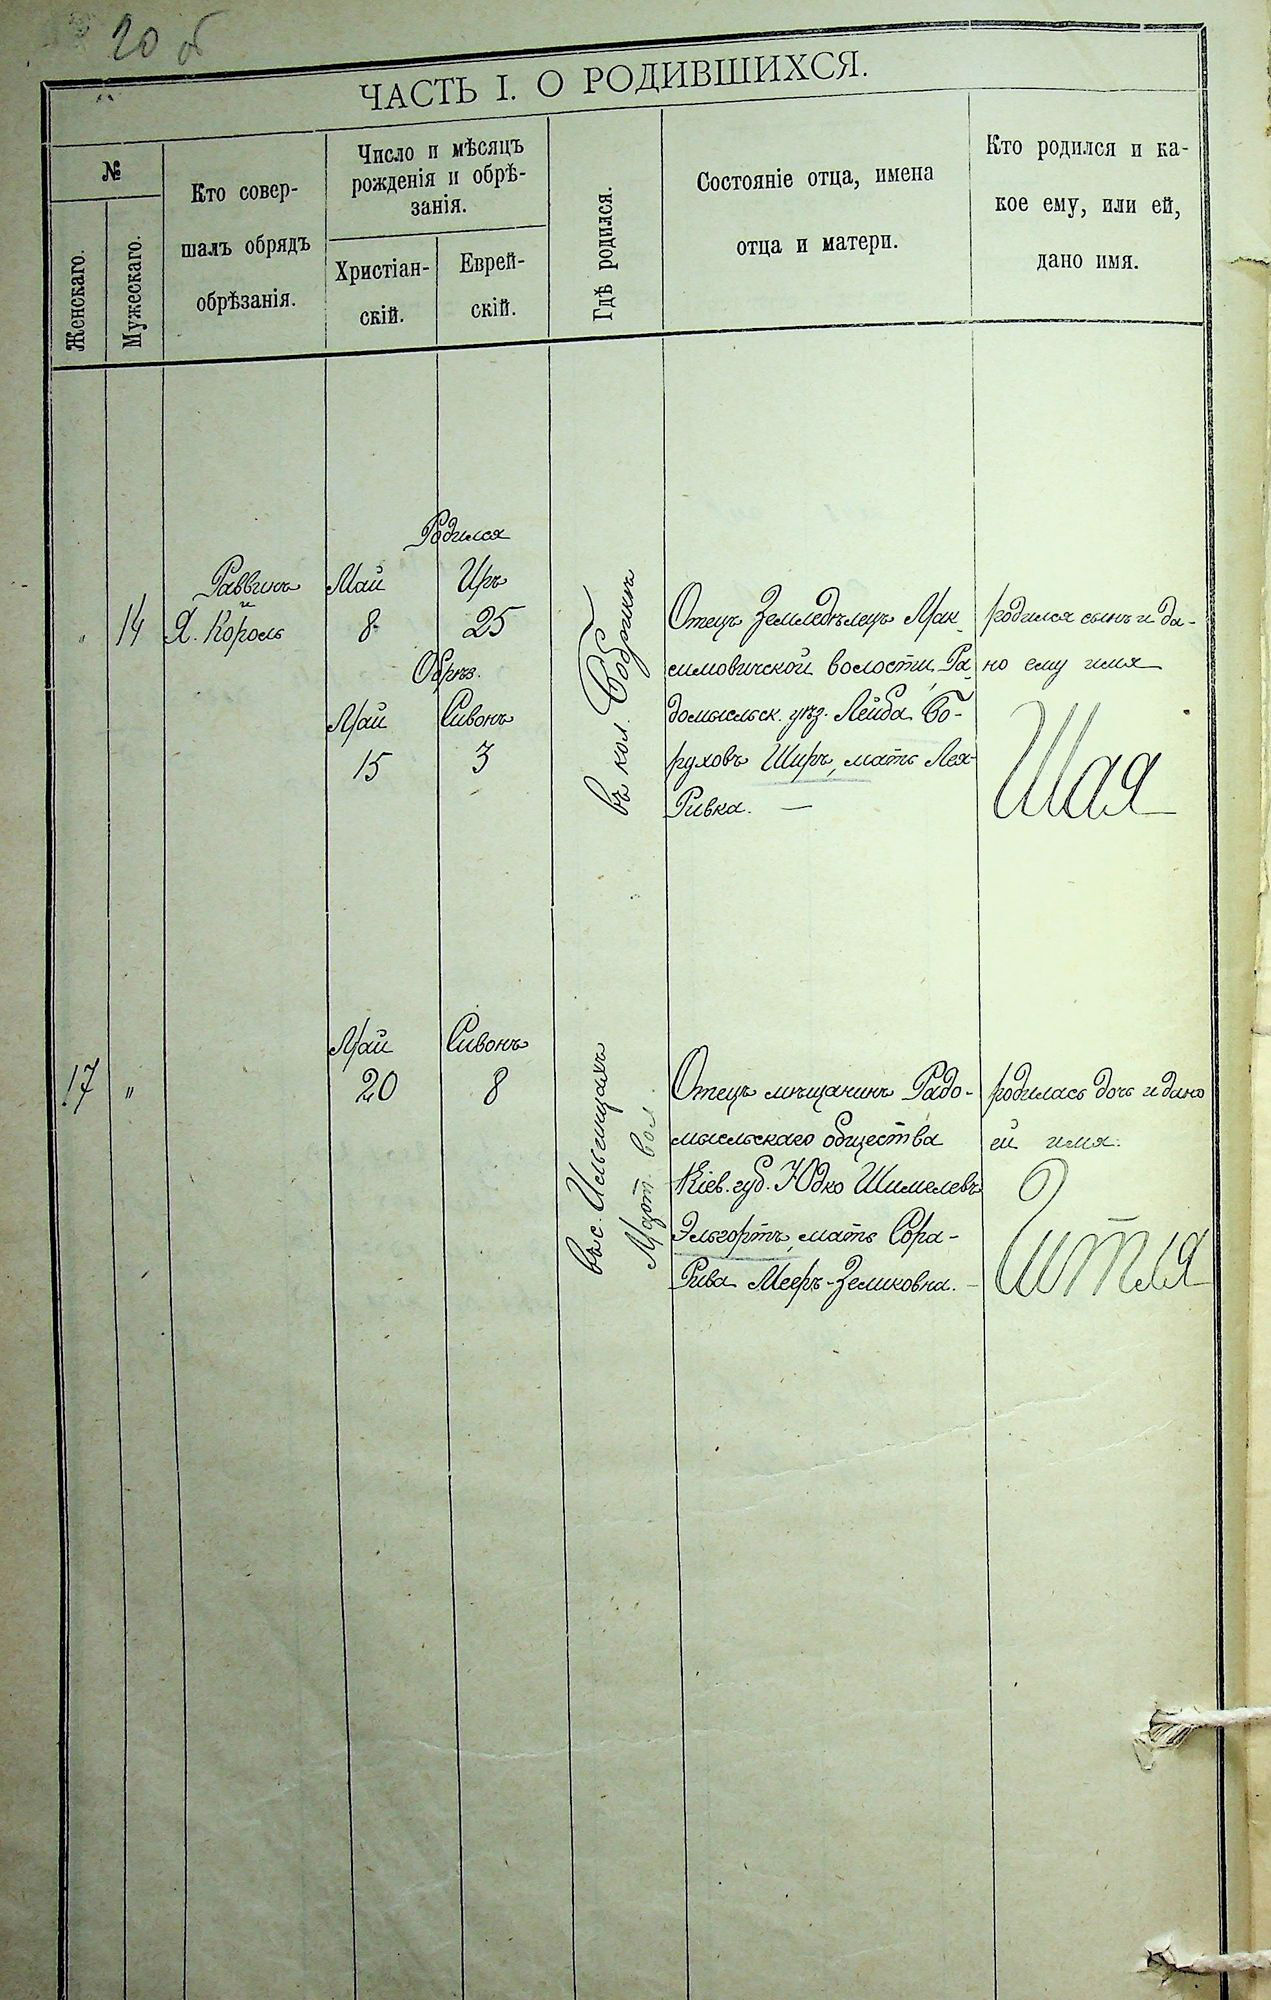 20 об
ЧАСТЬ I. О РОДИВШИХСЯ.
№
Женскаго.
Мужескаго.
Кто совер-
шалъ обрядъ
обрѣзанія.
Число и мѣсяцъ
рожденія и обрѣ-
занія.
Христіан-
скій.
Еврей-
скій.
Гдѣ родился.
Состояніе отца, имена
отца и матери.
Кто родился и ка-
кое ему, или ей,
дано имя.
"
14
Раввинъ
и
Я. Король
Родился
Май Иръ
8 25
Обрѣз.
Май Сивонъ
15 3
въ кол. Бобрикъ
Отецъ Земледѣлецъ Мак-
симовичской волости, Ра-
домысльск. уѣз. Лейба Бо-
руховъ Ширъ, мать Лея-
Ривка. —
родился сынъ и да-
но ему имя
Шая
17
"
Май Сивонъ
20 8
въ с. Ильинцахъ
Март. вол.
Отецъ мѣщанинъ Радо-
мысльскаго общества
Кіев. губ. Юдко Шимелевъ
Эльгортъ, мать Сора-
Рива Мееръ-Зеликовна. —
родилась дочь и дано
ей имя:
Гитля